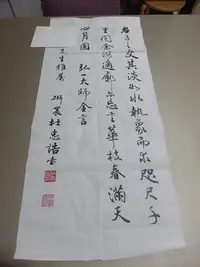 君子之交其淡如水執象而求咫尺千
里問余何適廓尔忘言華枝春滿天
心月圓 弘一大師金言
先生雅屬
杜忠誥書